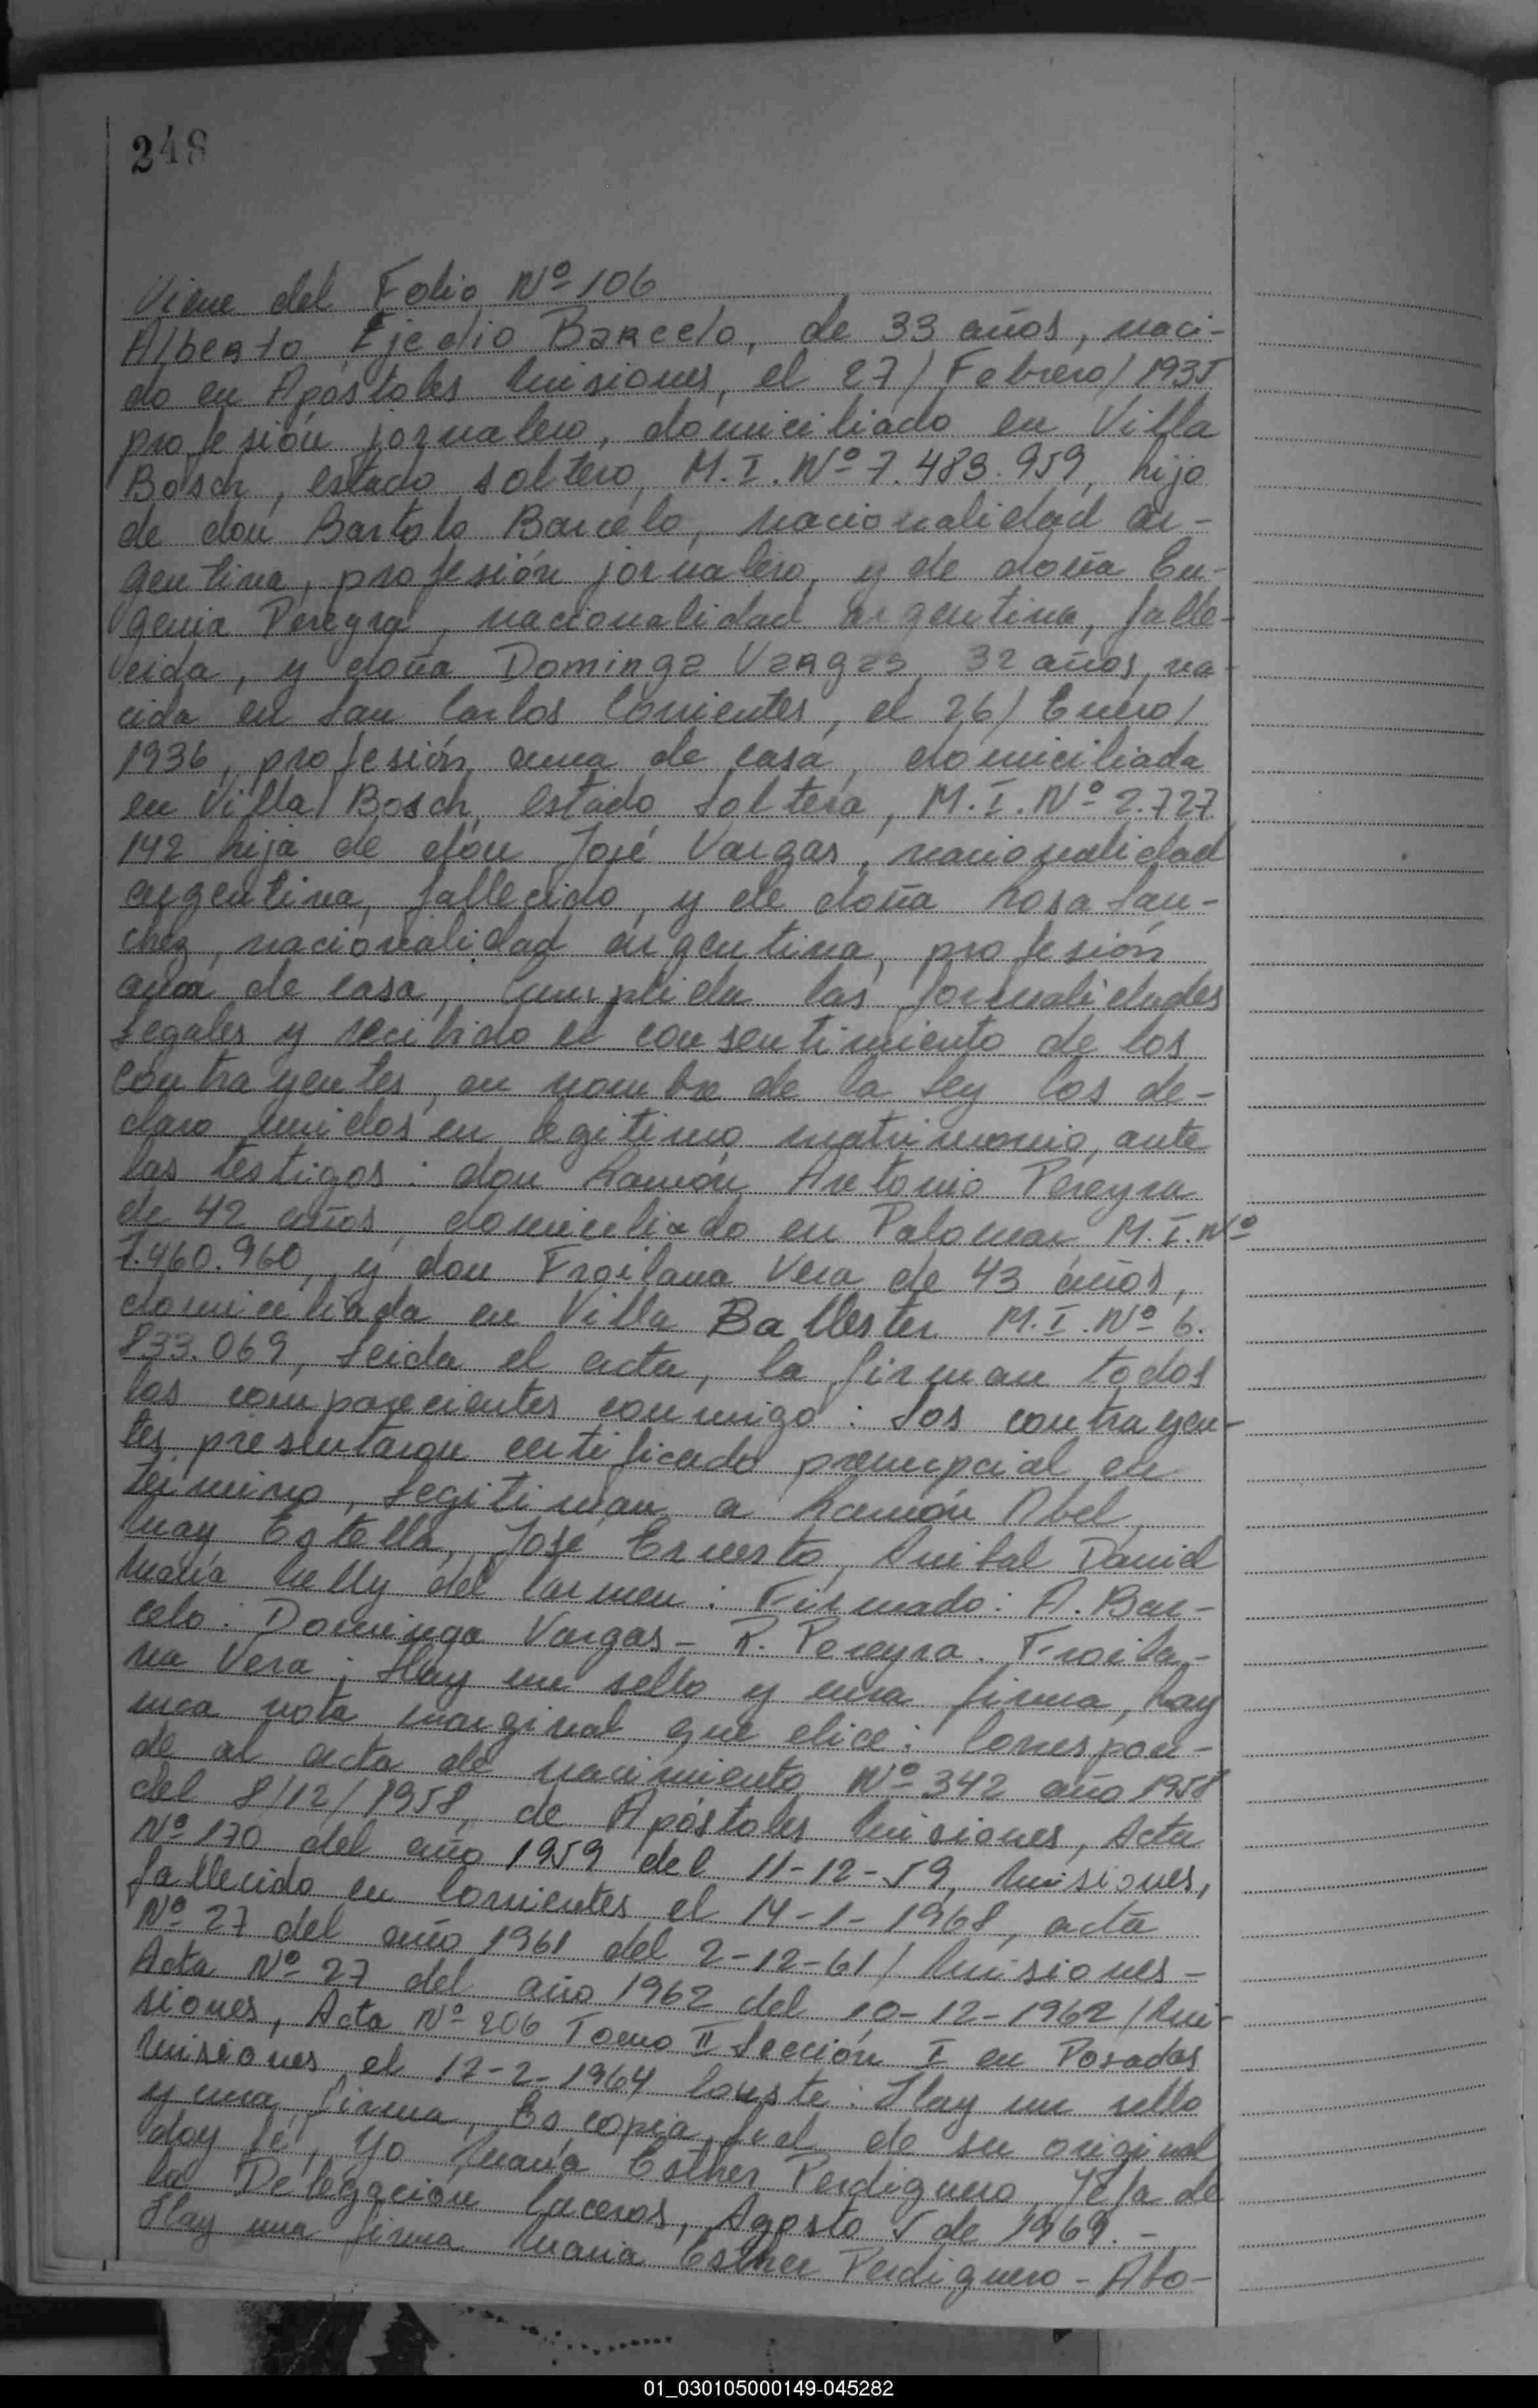 248
Viene del Folio Nº 106
Alberto Ejedio Barcelo, de 33 años, naci-
do en Apóstoles Misiones, el 27/Febrero/1935
profesión jornalero, domiciliado en Villa
Bosch, estado soltero, M.I. Nº 7.483.959, hijo
de don Bartolo Barcelo, nacionalidad ar-
gentina, profesión jornalero, y de doña Eu-
genia Peregra, nacionalidad argentina, falle-
cida, y doña Dominga Vargas, 32 años, na-
cida en San Carlos Corrientes, el 26/Enero/
1936, profesión ama de casa, domiciliada
en Villa Bosch, estado soltera, M.I. Nº 2.727.
142 hija de don José Vargas, nacionalidad
argentina, fallecido, y de doña Rosa San-
chez, nacionalidad argentina, profesión
ama de casa, Cumplida las formalidades
Legales y recibido el consentimiento de los
contrayentes, en nombre de la Ley los de-
claro unidos en legitimo matrimonio, ante
los testigos: don Ramón Antonio Pereyra
de 42 años, domiciliado en Palomar M.I. Nº
7.460.960, y don Froilana Vera de 43 años,
domiciliada en Villa Ballester M.I. Nº 6.
833.069, Leida el acta, la firman todos
los comparecientes conmigo: Los contrayen-
tes presentaron certificado prenupcial en
término, Legitiman a Ramón Abel,
Estella, José Ernesto, Anibal David
María Nelly del Carmen: Firmado: A. Bar-
celo: Dominga Vargas - R. Pereyra. Froila-
na Vera; Hay un sello y una firma, hay
una nota marginal que dice: Correspon-
de al acta de nacimiento Nº 342 año 1958
del 8/12/1958, de Apóstoles Misiones, Acta
Nº 170 del año 1959 del 11-12-59, Misiones,
fallecido en Corrientes el 14-1-1968, acta
Nº 27 del año 1961 del 2-12-61/Misiones-
Acta Nº 27 del año 1962 del 10-12-1962/Mi-
siones, Acta Nº 206 Tomo II Sección I en Posadas
Misiones el 12-2-1964 Conste: Hay un sello
y una firma, Es copia fiel de su original
doy fé, Yo María Esther Perdiguero, Jefa de
la Delegación Caceros, Agosto 5 de 1969.-
Hay una firma Maria Esther Perdiguero - Abo-
01_030105000149-045282